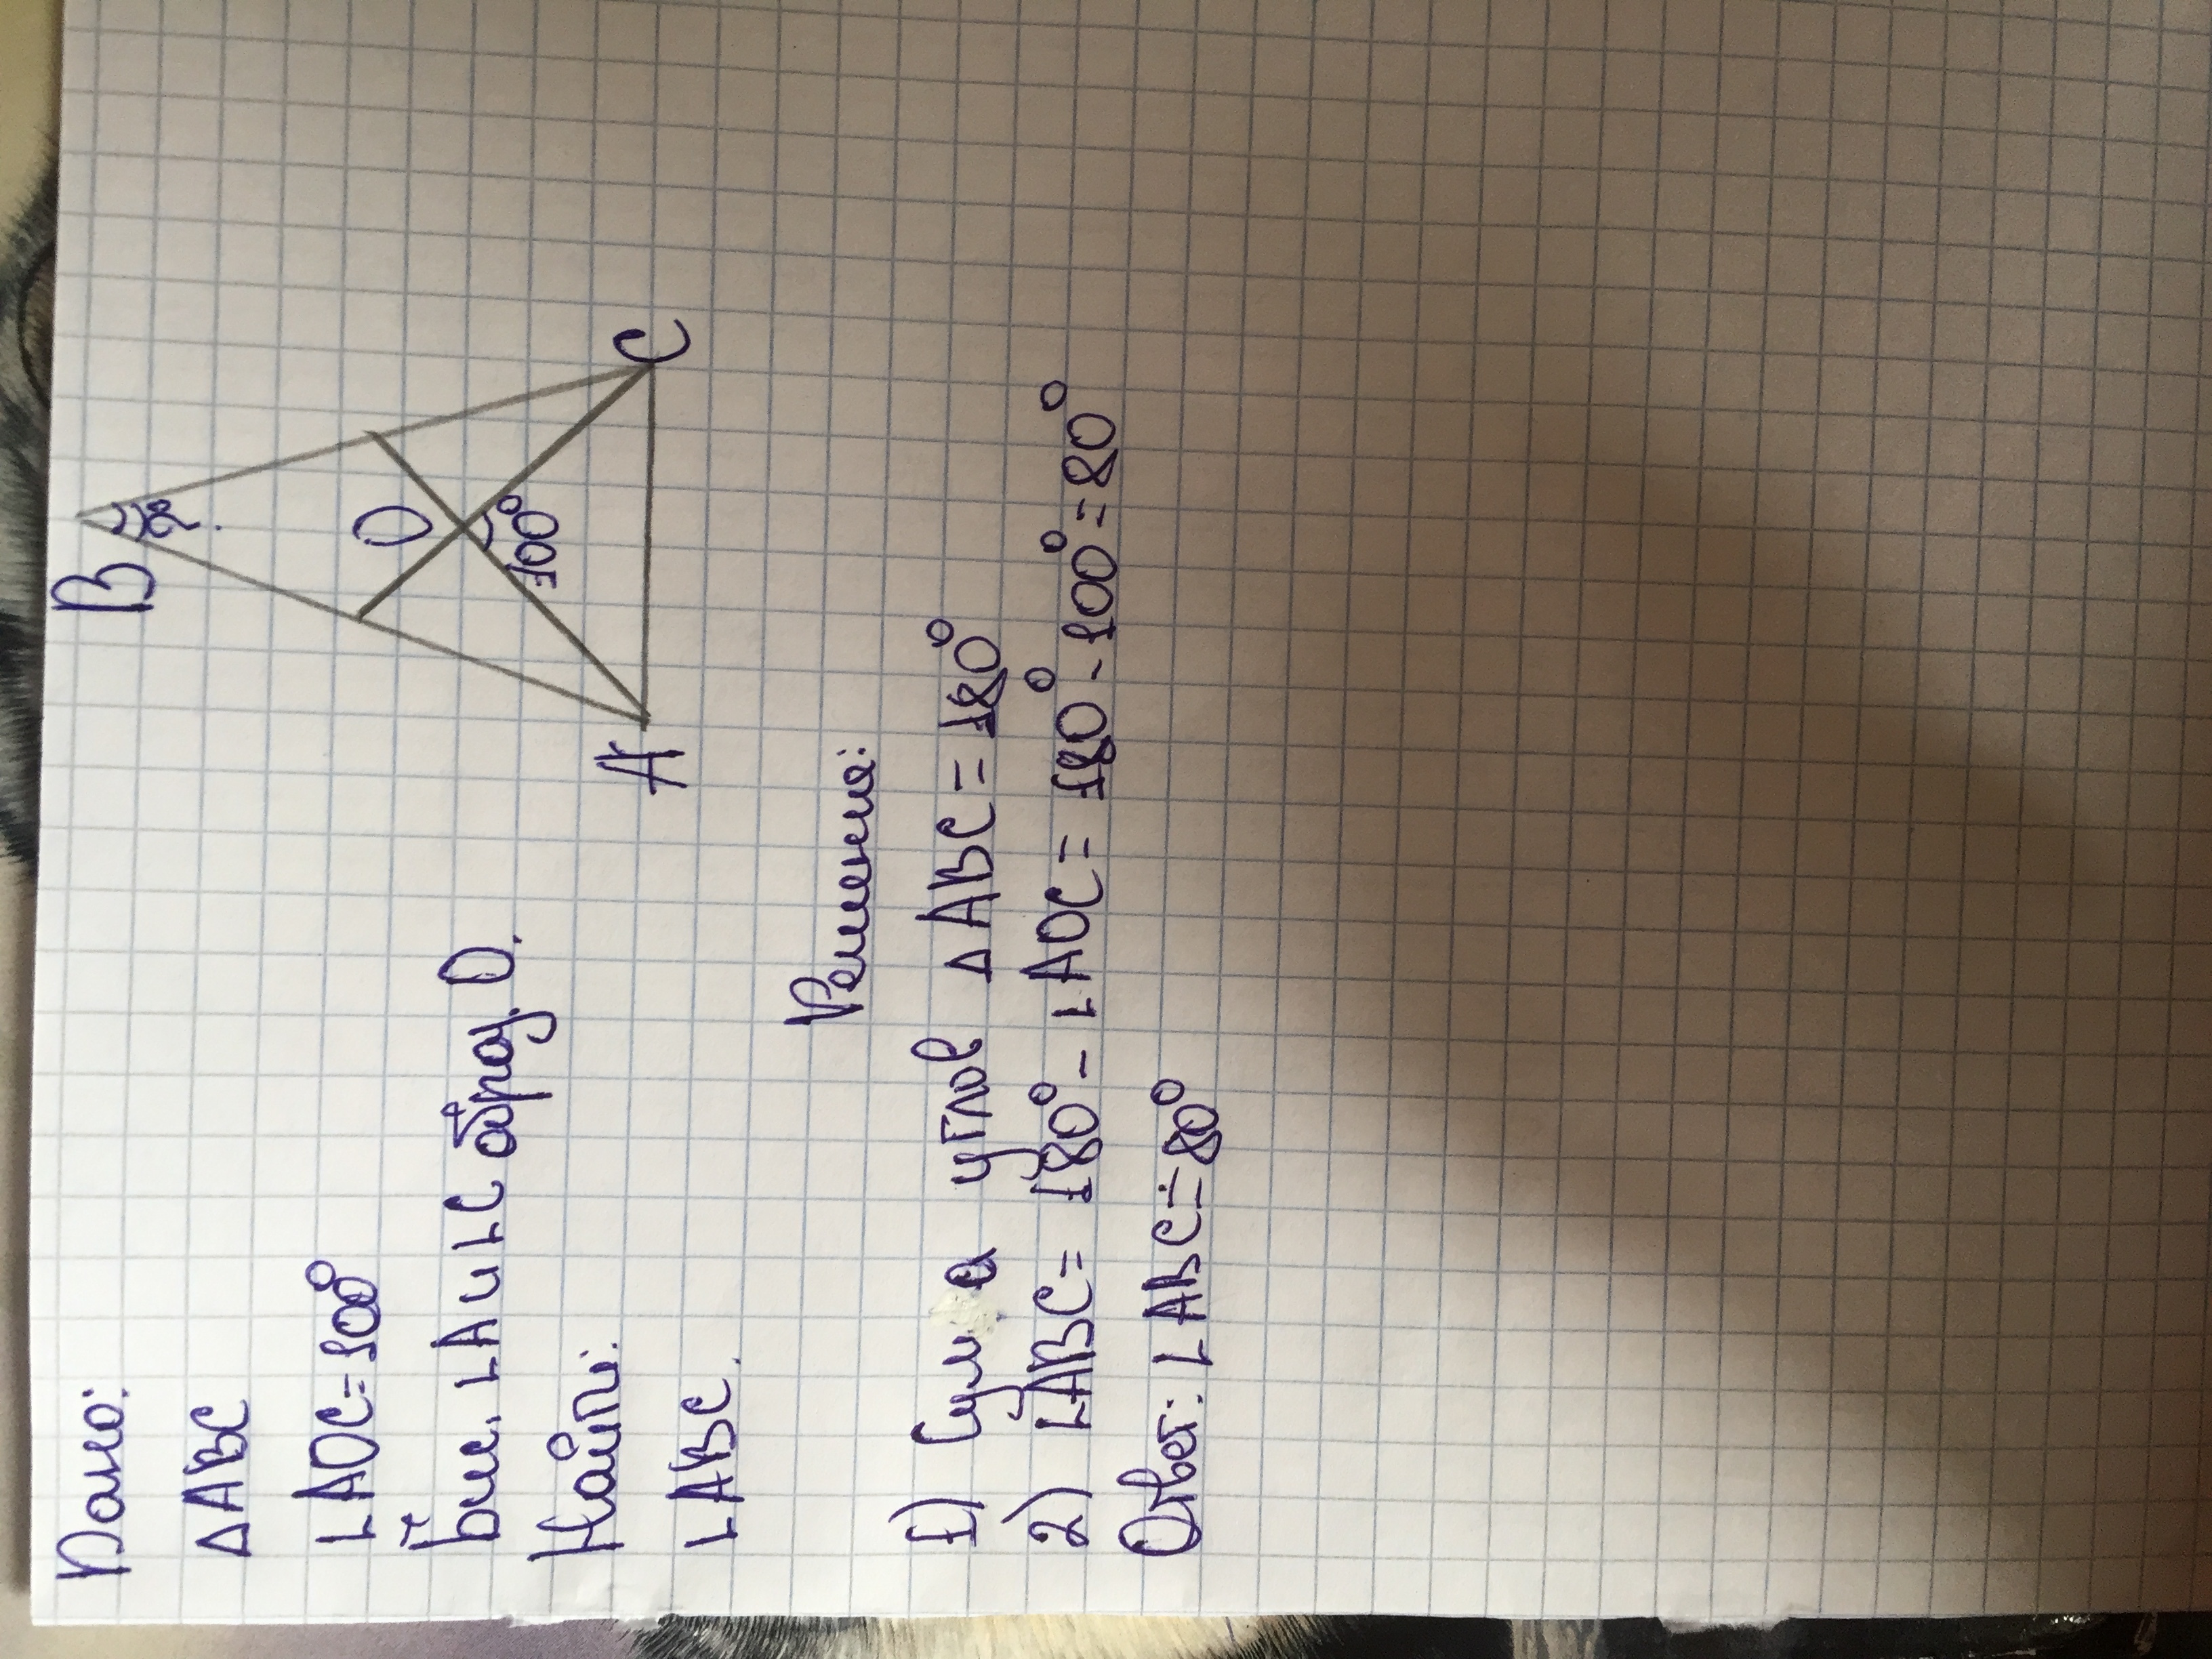 Дано:
△ABC
∟AOC=100°
бис. ∟A и ∟C образ. O.
Найти:
∟ABC.
B
?
O
100°
A
C
Решение:
1) Сумма углов △ABC=180°
2) ∟ABC= 180°-∟AOC= 180°-100°=80°
Ответ: ∟ABC=80°